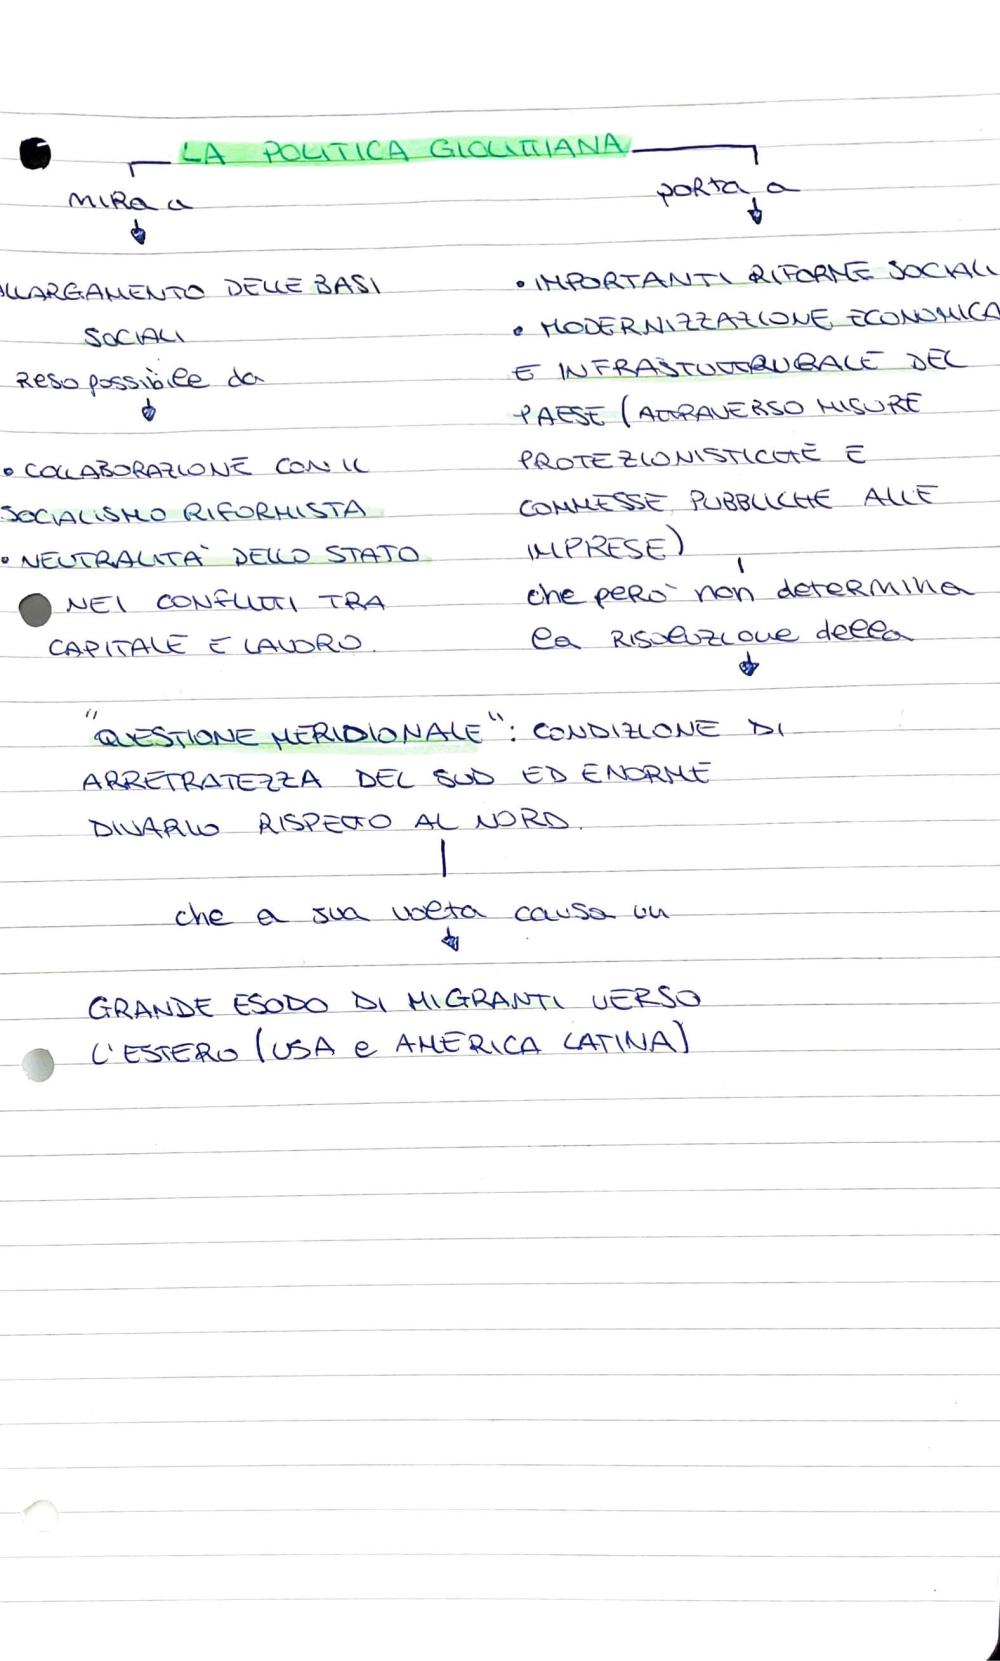 LA POLITICA GIOLITTIANA
MIRA a
ALLARGAMENTO DELLE BASI
SOCIALI
RESO possibile da
• COLLABORAZIONE CON IL
SOCIALISMO RIFORMISTA
• NEUTRALITA' DELLO STATO
NEI CONFLITTI TRA
CAPITALE E LAVORO.
PORTA a
• IMPORTANTI RIFORME SOCIALI
• MODERNIZZAZIONE ECONOMICA
E INFRASTUTTRURALE DEL
PAESE (ATTRAVERSO MISURE
PROTEZIONISTICHE E
COMMESSE PUBBLICHE ALLE
IMPRESE)
che però non determina
la RISOLUZIONE della
"QUESTIONE MERIDIONALE": CONDIZIONE DI
ARRETRATEZZA DEL SUD ED ENORME
DIVARIO RISPETTO AL NORD.
che a sua volta causa un
GRANDE ESODO DI MIGRANTI VERSO
L'ESTERO (USA e AMERICA LATINA)